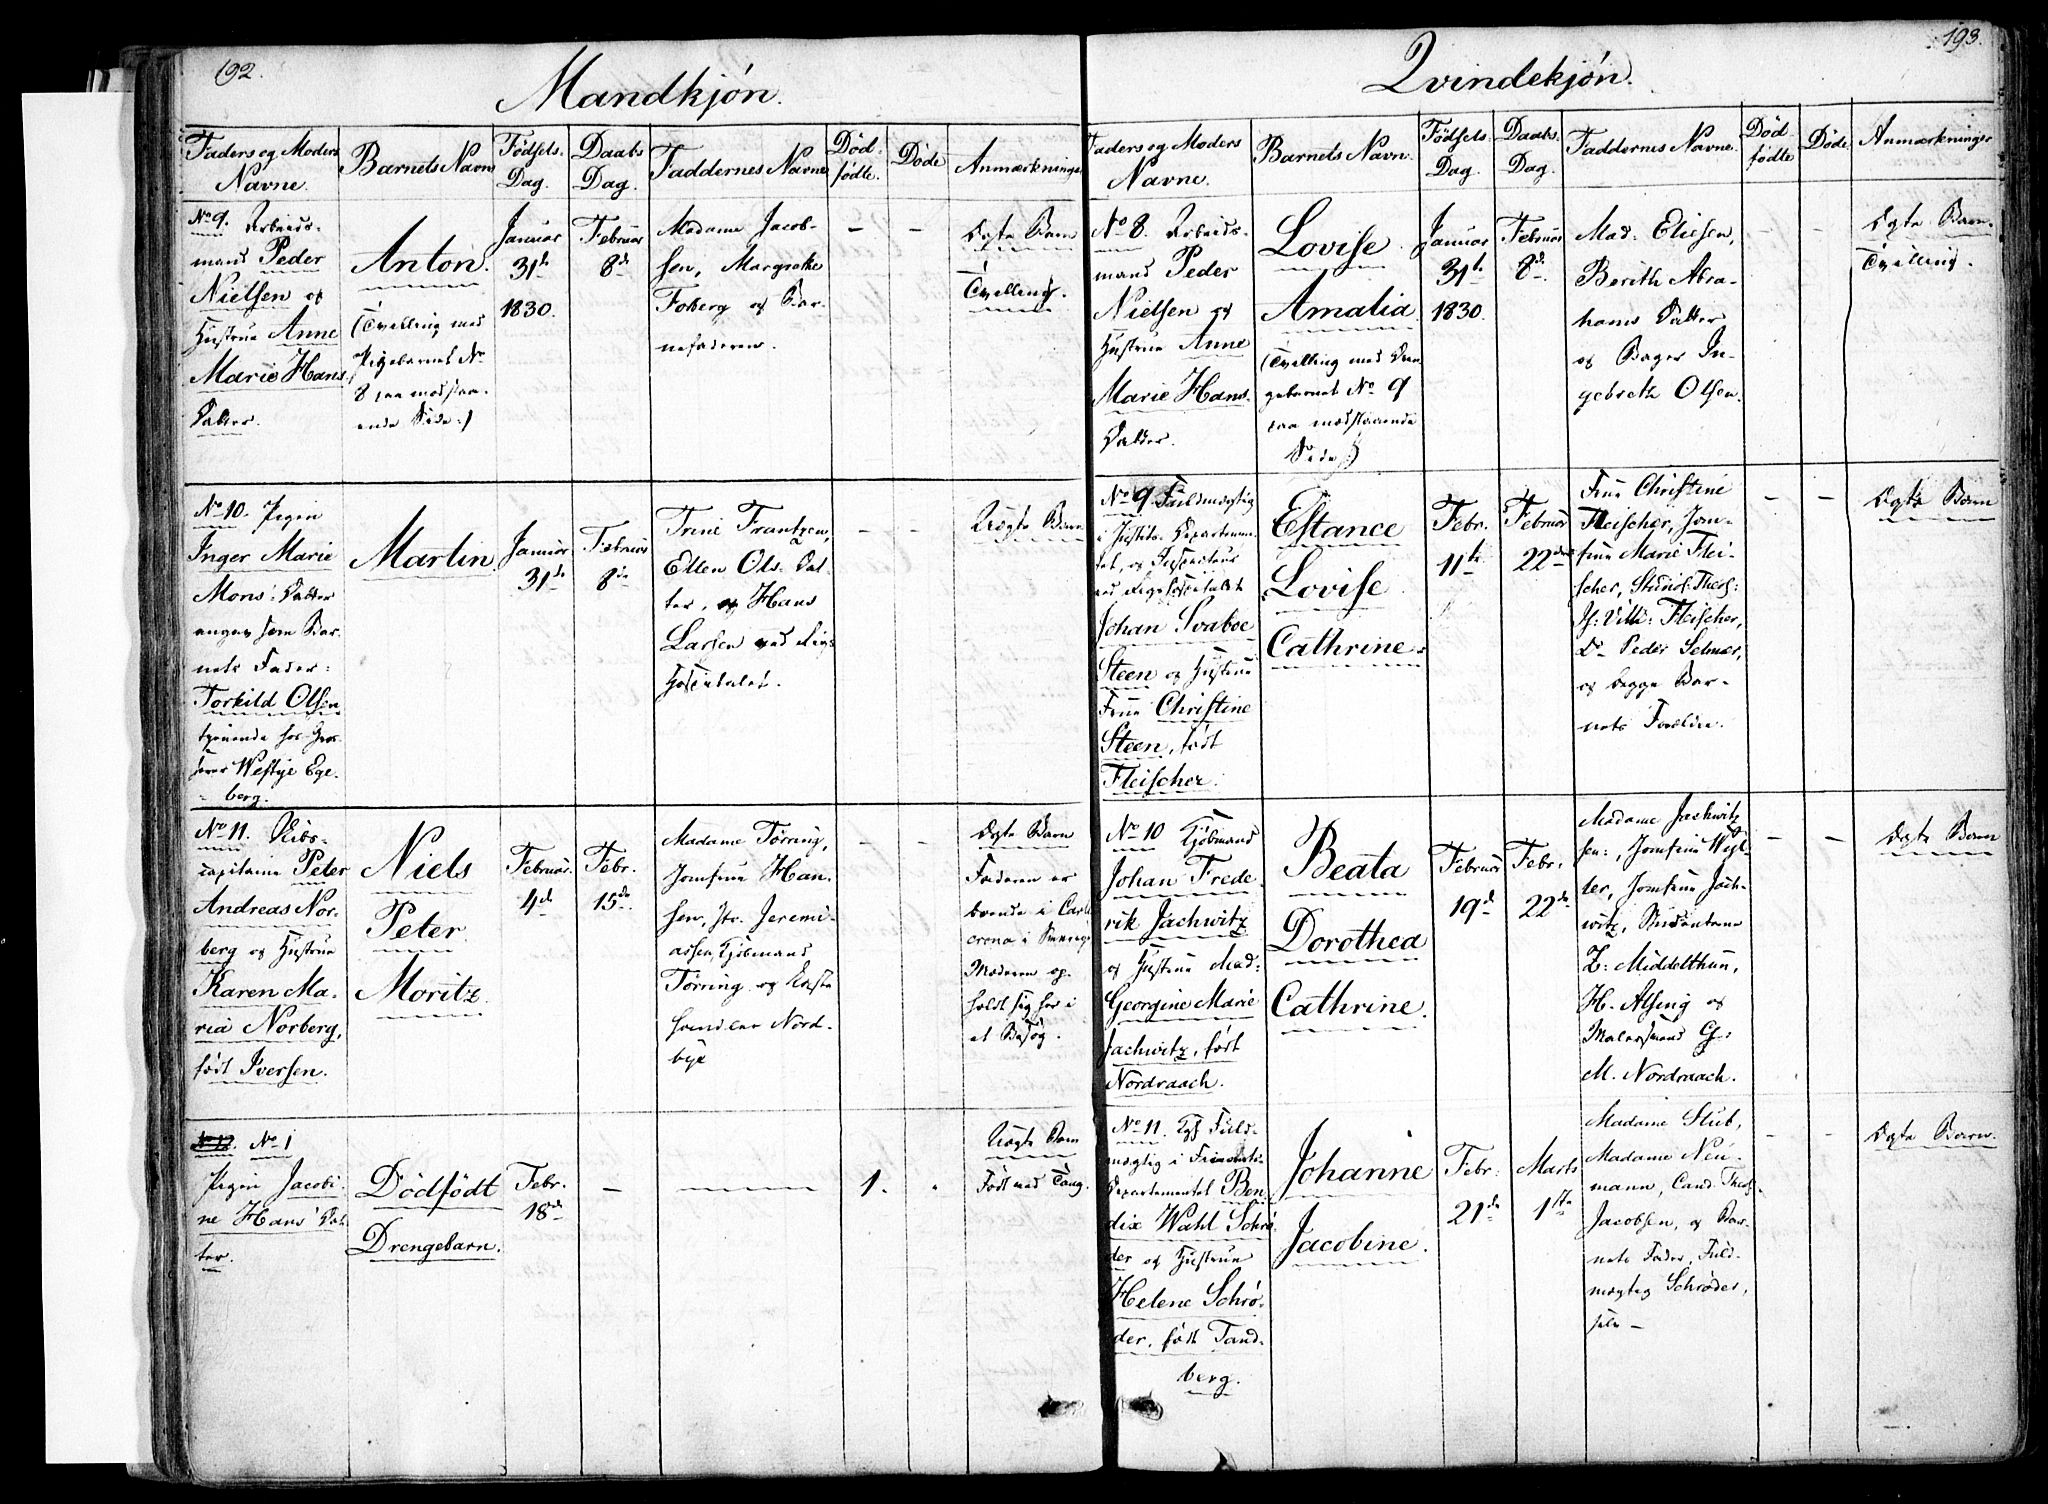 192.
Mandkjön.
Faders og Moders
Navne.
Barnets Navn
Födsels-
Dag.
Daabs
Dag.
Faddernes Navne
Död-
födte.
Döde
Anmærkninger
No 9. Arbeids-
mand Peder
Nielsen og
Hustrue Anne
Marie Hans
Datter.
Anton.
(Tvilling med
Pigebarnet No
8 paa modstaa-
ende Side:)
Januar
31de
1830.
Februar
8de
Madame Jacob-
sen, Margrethe
Foberg og Bar-
nefaderen.
-
-
Ægte Barn
Tvilling.
No 10. Pigen
Inger Marie
Mons: Datter
angav som Bar-
nets Fader:
Torkild Olsen
tjenende hos Gros-
serer Westye Ege-
berg.
Martin.
Januar
31de
Februar
8de
Trine Frantzen,
Ellen Ols. Dat-
ter, og Hans
Larsen ved Rigs
Hospitalet.
-
-
Uægte Barn
No 11. Skibs-
capitaine Peter
Andreas Nor-
berg og Hustrue
Karen Ma-
ria Norberg,
født Iversen.
Niels
Peter
Moritz.
Februar.
4de
Febr.
15de
Madame Tørring,
Jomfrue Han-
sen, Hr. Jeremi-
assen, Kjøbmand
Tørring og
Handler Nord-
bye
-
-
Ægte Barn
Faderen er
boende i Carls
crona i Sverrige
Moderen op-
holdt sig her i
et Besøg.
No 12. No 1
Pigen Jacobi-
ne Hans' Dat-
ter.
Dödfödt
Drengebarn.
Febr.
18de
-
1.
Uægte Barn
Født ved Tang.
193.
Qvindekjön.
Faders og Moders
Navne.
Barnets Navn.
Födsels
Dag.
Daabs.
Dag.
Faddernes Navne.
Död-
födte
Döde
Anmærkninger
No 8. Arbeids-
mand Peder
Nielsen og
Hustrue Anne
Marie Hans.
Datter.
Lovise
Amalia.
(Tvilling med Dren
gebarnet No 9
paa modstaaende
Side)
Januar
31te
1830.
Februar
8de
Mad: Eliesen,
Berith Abra-
hams Datter
og Bager In-
gebreth Olsen.
-
-
Ægte Barn.
Tvilling.
No 9. Fuldmægtig
i Justits-Departemen-
tet, og Inspecteur
ved Rigshospitalet
Johan Svaboe
Steen og Hustrue
Frue Christine
Steen, født
Fleischer.
Estance
Lovise
Cathrine.
Febr.
11te
Februar
22de
Frue Christine
Fleischer, Jom-
frue Marie Flei-
scher, Stud: Theol:
H: Vilh: Fleischer,
Dr Peder Selmer,
og begge Bar-
nets Forældre.
-
-
Ægte Barn
No 10 Kjøbmand
Johan Frede-
rik Jachwitz
og Hustrue Mad:
Georgine Marie
Jachwitz, født
Nordraach.
Beata
Dorothea
Cathrine.
Februar
19de
Febr.
22de
Madame Jachwitz
sen:, Jomfrue
Jomfrue Jach-
witz, Studenterne
Z: Middelthun,
H. Alsing og
G:
M. Nordraach.
-
-
Ægte Barn
No 11. Kgl Fuld-
mægtig i
Departementet Ben
dix Wahl Schrø-
der og Hustrue
Helene Schrø-
der, født Tand-
berg.
Johanne
Jacobine.
Febr.
21de
Marts
1ste
Madame Stub,
Madame Neu-
mann, Cand. Theol.
Jacobsen, og Bar-
nets Fader, Fuld-
mægtig Schrøder,
selv -
-
-
Ægte Barn.